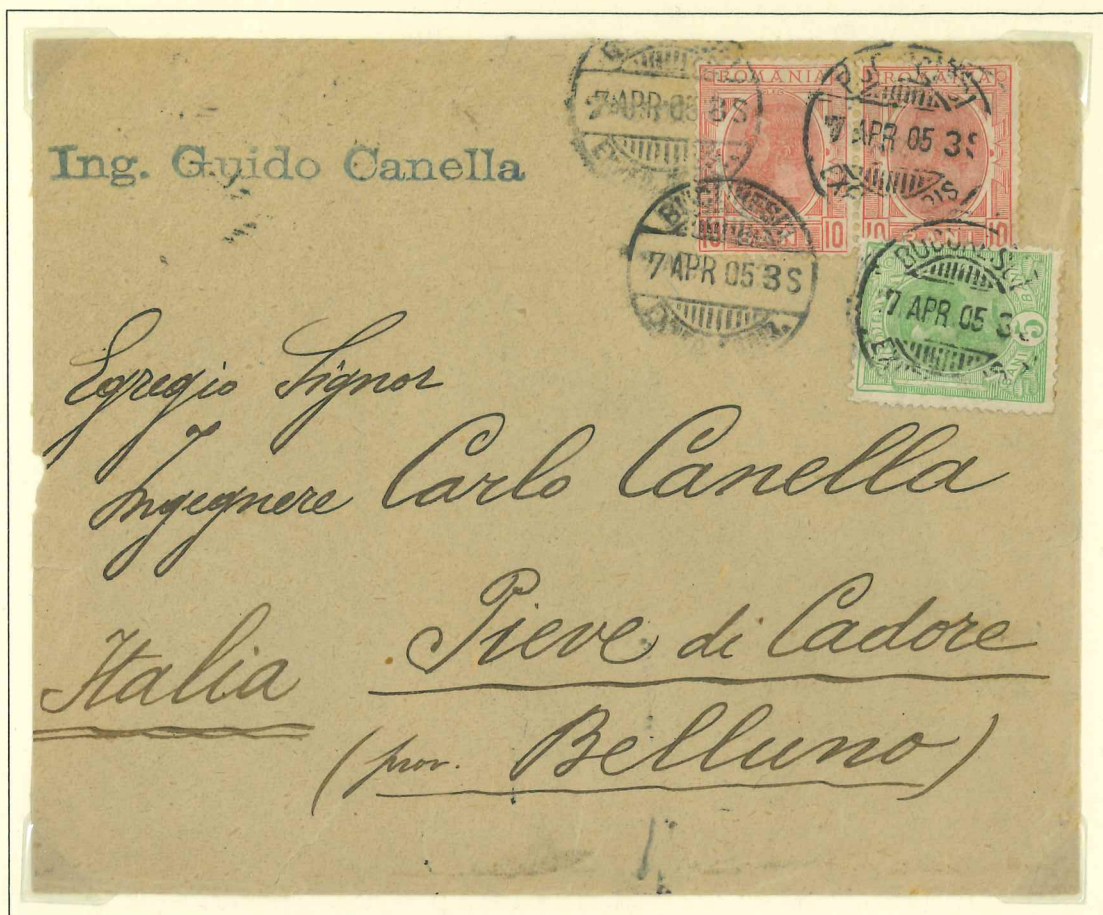 Ing. Guido Canella
ROMANIA ROMANIA
7 APR 05 3S
7 APR 05 3S
10 10 10 10
7 APR 05 3S
BUCURESCI
7 APR 05
5 BANI
Egregio Signor
Ingegnere Carlo Canella
Pieve di Cadore
Italia
(prov. Belluno)